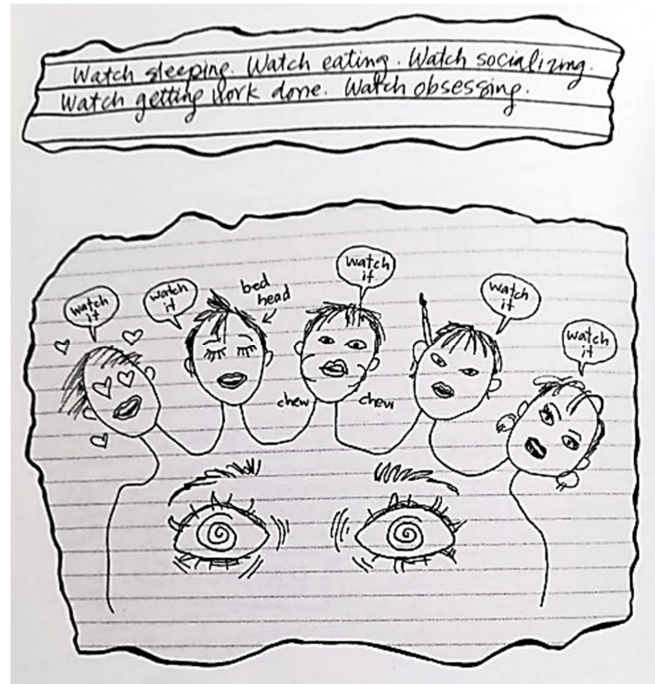 Watch sleeping. Watch eating. Watch socializing.
Watch getting work done. Watch obsessing.
watch
it
watch
it
bed
head
watch
it
watch
it
watch
it
chew
chew